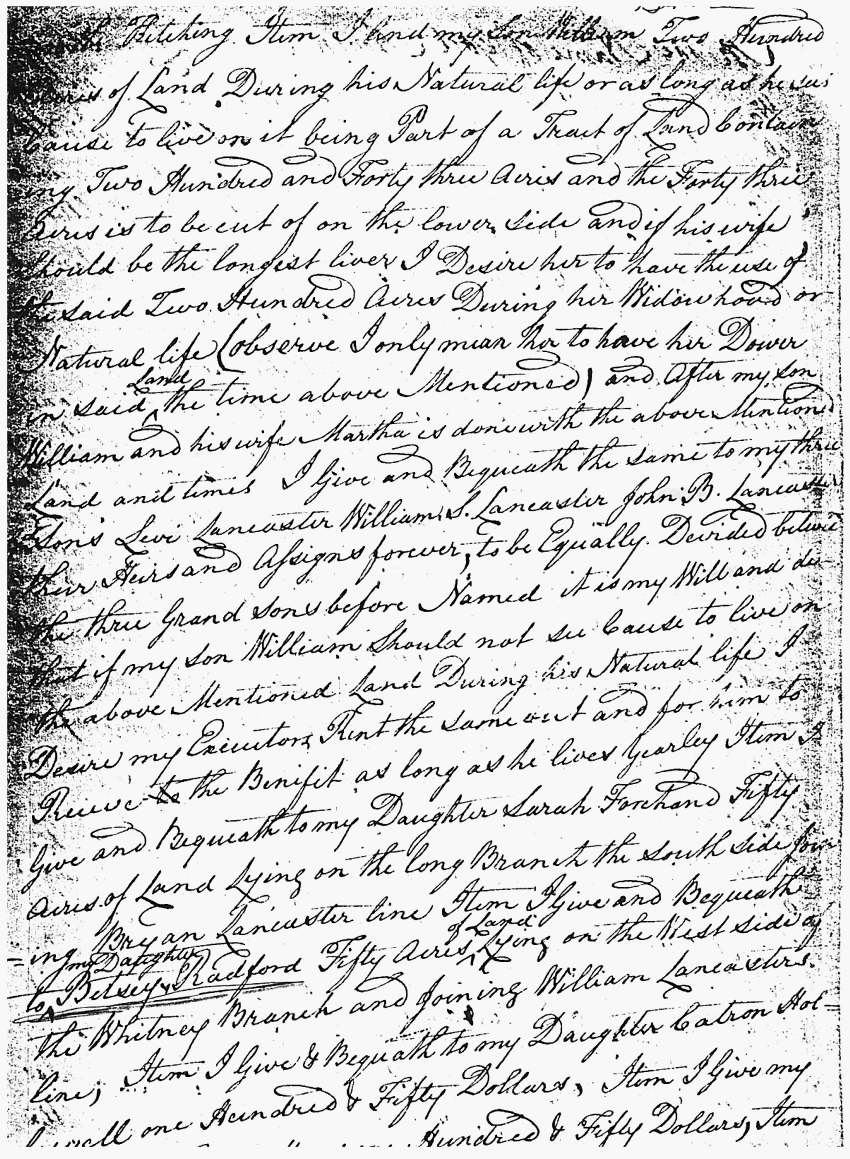 Hitching Item I lend my Son William Two Hundred
acres of Land During his Natural life or as long as he sees
Cause to live on it being Part of a Tract of Land Contain
ing Two Hundred and Forty three acres and the Forty three
acres is to be cut of on the lower side and if his wife
should be the longest liver I Desire her to have the use of
the said Two Hundred acres During her Widowhood or
Natural life (observe I only mean her to have her Dower
in said Land the time above Mentioned) and After my son
William and his wife Martha is done with the above Mentioned
Land and times I Give and Bequeath the same to my three
Sons Levi Lancaster William S. Lancaster John B. Lancaster
their Heirs and Assigns forever, to be Equally Devided betwee
the three Grand sons before Named it is my Will and de-
that if my son William should not see Cause to live on
the above Mentioned Land During his Natural life I
Desire my Executors Rent the same out and for him to
Receive to the Benifit as long as he lives yearley Item I
Give and Bequeath to my Daughter Sarah Forehand Fifty
acres of Land Lying on the long Branch the south side Join
=ing Bryan Lancaster line Item I Give and Bequeath
to my Daughter Betsey Radford Fifty Acres of Land Lying on the West side of
the Whitney Branch and Joining William Lancasters
line; Item I Give & Bequeath to my Daughter Catron Hol=
well one Hundred & Fifty Dollars, Item I Give my
Hundred & Fifty Dollars, Item